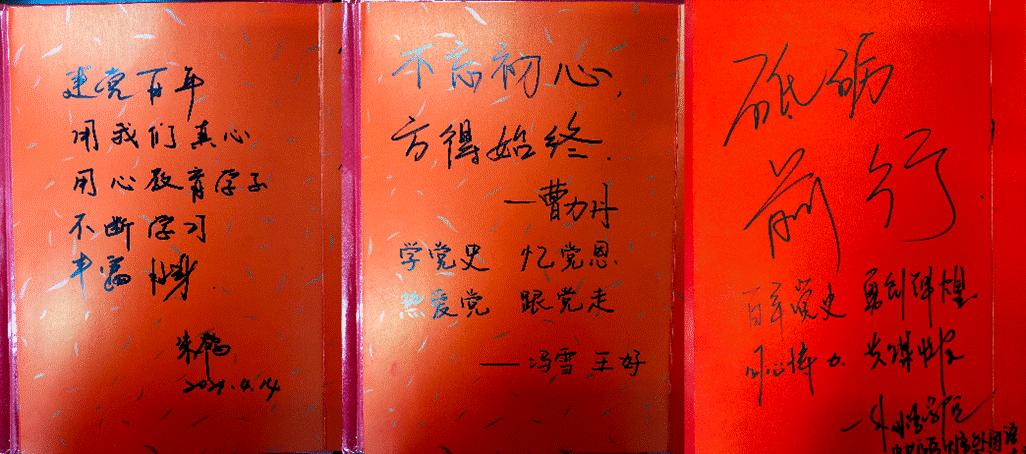 建党百年
用我们真心
用心教育学子
不断学习
丰富自身
2021.4.14
不忘初心，
方得始终.
—曹力丹
学党史 忆党恩
热爱党 跟党走
——冯雪 王好
砥砺
前行.
百年党史 勇创辉煌
同心协力 共谋发展
外国语学院